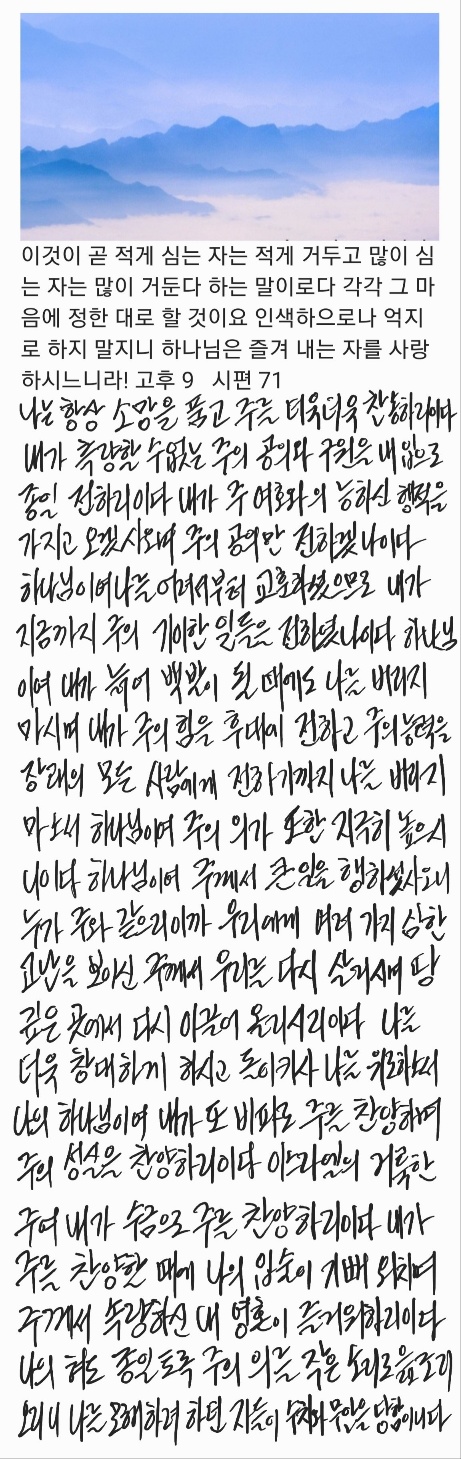 이것이 곧 적게 심는 자는 적게 거두고 많이 심
는 자는 많이 거둔다 하는 말이로다 각각 그 마
음에 정한 대로 할 것이요 인색하으로나 억지
로 하지 말지니 하나님은 즐겨 내는 자를 사랑
하시느니라! 고후 9 시편 71
나는 항상 소망을 품고 주를 더욱더욱 찬송하리이다
내가 측량할 수없는 주의 공의와 구원을 내 입으로
종일 전하리이다 내가 주 여호와의 능하신 행적을
가지고 오겠사오며 주의 공의만 전하겠나이다
하나님이여 나를 어려서부터 교훈하셨으므로 내가
지금까지 주의 기이한 일들을 전하였나이다 하나님
이여 내가 늙어 백발이 될 때에도 나를 버리지
마시며 내가 주의 힘을 후대에 전하고 주의 능력을
장래의 모든 사람에게 전하기까지 나를 버리지
마소서 하나님이여 주의 의가 또한 지극히 높으시
니이다 하나님이여 주께서 큰 일을 행하셨사오니
누가 주와 같으리이까 우리에게 여러 가지 심한
고난을 보이신 주께서 우리를 다시 살리시며 땅
깊은 곳에서 다시 이끌어 올리시리이다 나를
더욱 창대하게 하시고 돌이키사 나를 위로하소서
나의 하나님이여 내가 또 비파로 주를 찬양하며
주의 성실을 찬양하리이다 이스라엘의 거룩한
주여 내가 수금으로 주를 찬양하리이다 내가
주를 찬양할 때에 나의 입술이 기뻐 외치며
주께서 속량하신 내 영혼이 즐거워하리이다
나의 혀도 종일토록 주의 의를 작은 소리로 읊조리
오리니 나를 모해하려 하던 자들이 수치와 무안을 당함이니이다